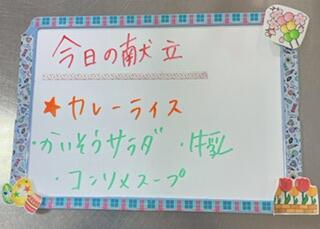 今日の献立
★カレーライス
・かいそうサラダ ・牛乳
・コンソメスープ